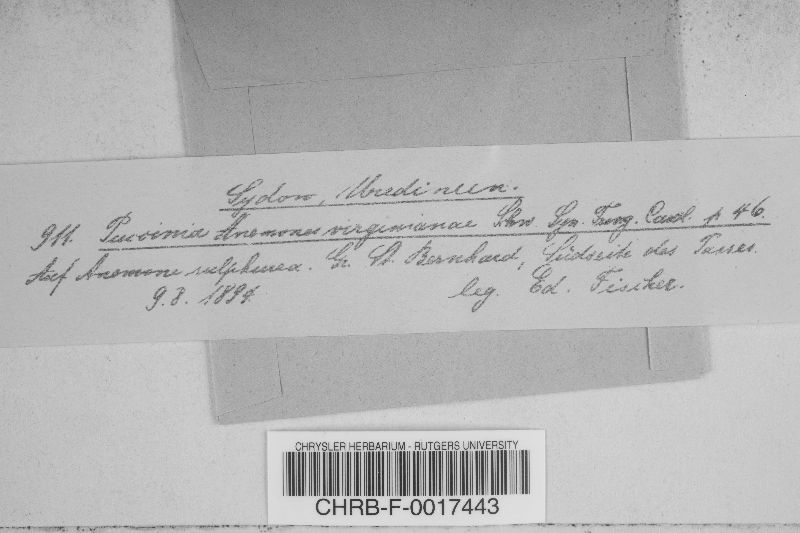 Sydow, Uredineen.
911. Puccinia Anemones virginianae Schw Syn. Fung. Carol. p 46.
Auf Anemone sulphurea. Gr. St. Bernhard, Südseite des Passes.
9. 8. 1894. leg. Ed. Fischer.
CHRYSLER HERBARIUM - RUTGERS UNIVERSITY
CHRB-F-0017443